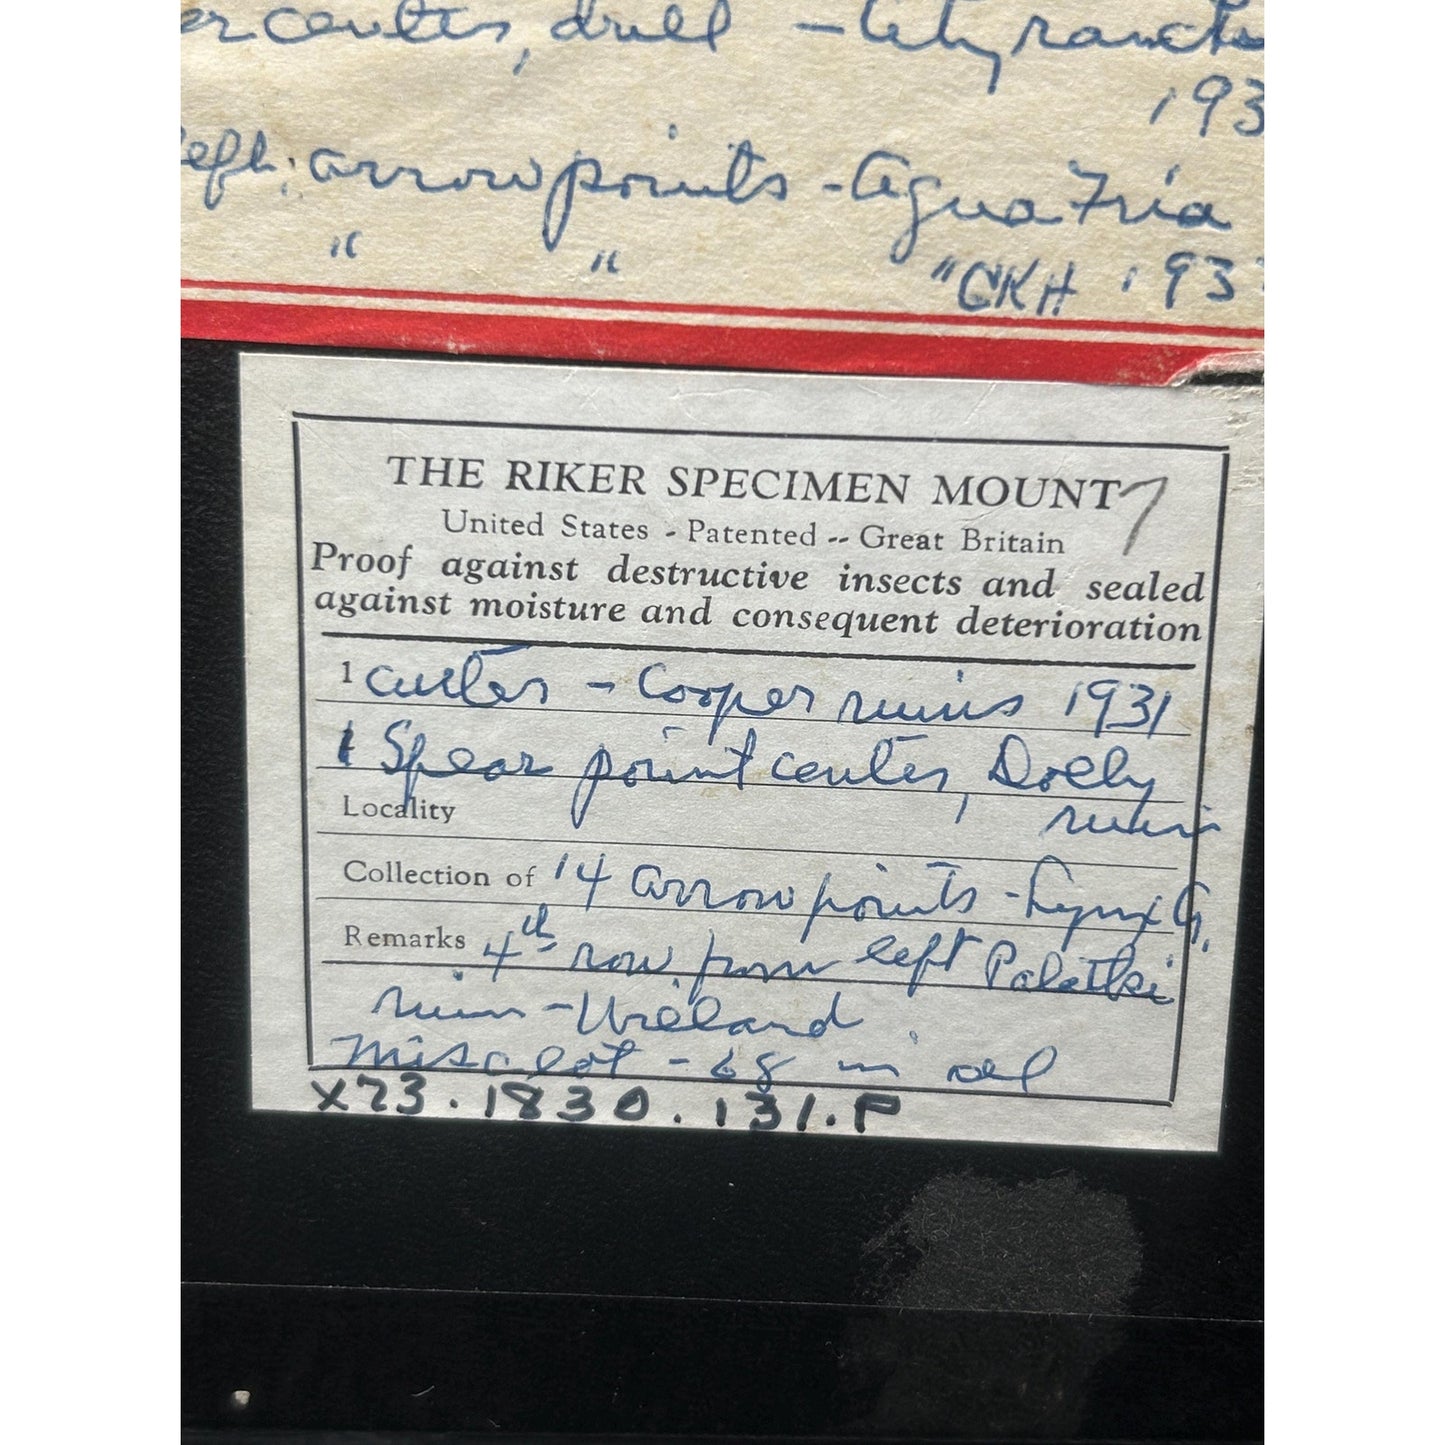 er center, drill - City ranch
193
left: arrow points - Agua Fria
" " " CKH 193
THE RIKER SPECIMEN MOUNT 7
United States - Patented -- Great Britain
Proof against destructive insects and sealed
against moisture and consequent deterioration
1 cutter - Cooper ruins 1931
1 Spear point center, Dolly
Locality ruin
Collection of 14 arrow points - Lynx C.
Remarks 4th row from left Palatki
ruin - Wieland
Misc lot - 68 in all
x73.1830.131.P